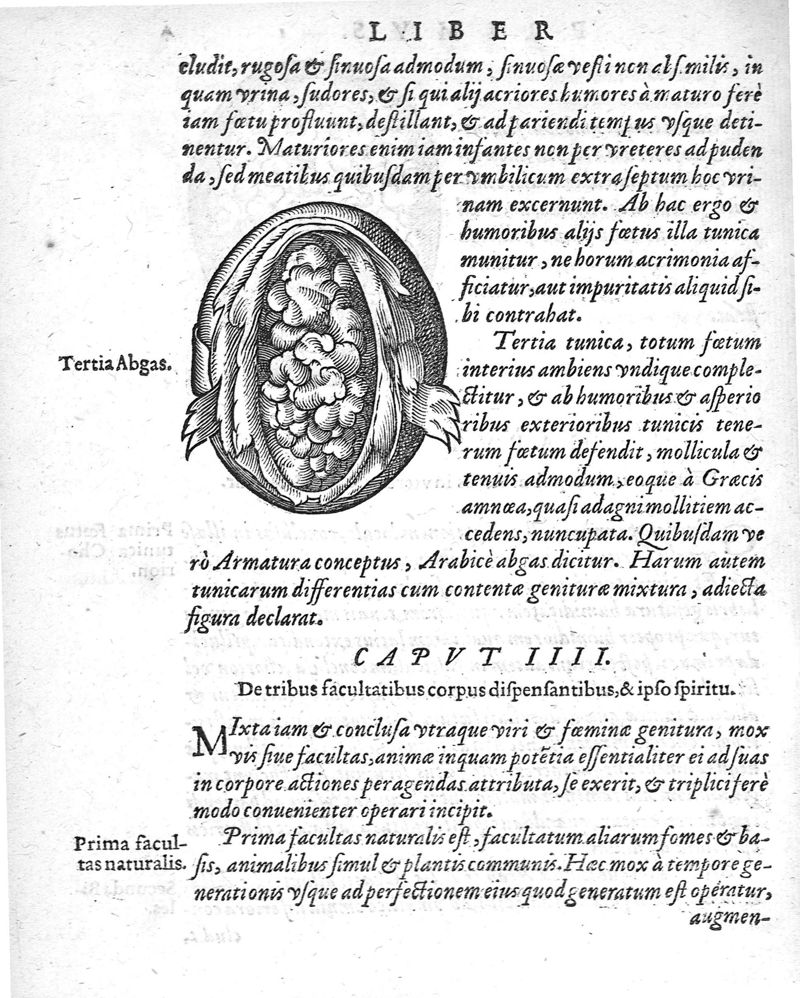 LIBER
cludit, rugosa & sinuosa admodum, sinuosæ vesti non absimilis, in
quam vrina, sudores, & si qui alij acriores humores à maturo ferè
iam fœtu profluunt, destillant, & ad pariendi tempus vsque deti-
nentur. Maturiores enim iam infantes non per vreteres ad puden
da, sed meatibus quibusdam per vmbilicum extra septum hoc vri-
nam excernunt. Ab hac ergo &
humoribus alijs fœtus illa tunica
munitur, ne horum acrimonia af-
ficiatur, aut impuritatis aliquid si-
bi contrahat.
Tertia tunica, totum fœtum
Tertia Abgas.
interius ambiens vndique comple-
ctitur, & ab humoribus & asperio
ribus exterioribus tunicis tene-
rum fœtum defendit, mollicula &
tenuis admodum, eoque à Græcis
amnœa, quasi ad agni mollitiem ac-
cedens, nuncupata. Quibusdam ve
rò Armatura conceptus, Arabicè abgas dicitur. Harum autem
tunicarum differentias cum contentæ genituræ mixtura, adiecta
figura declarat.
CAPVT IIII.
De tribus facultatibus corpus dispensantibus, & ipso spiritu.
MIxta iam & conclusa vtraque viri & fœminæ genitura, mox
vis siue facultas, animæ inquam potẽtia essentialiter ei ad suas
in corpore actiones peragendas attributa, se exerit, & triplici ferè
modo conuenienter operari incipit.
Prima facultas naturalis est, facultatum aliarum fomes & ba-
Prima facul-
tas naturalis.
sis, animalibus simul & plantis communis. Hæc mox à tempore ge-
nerationis vsque ad perfectionem eius quod generatum est operatur,
augmen-